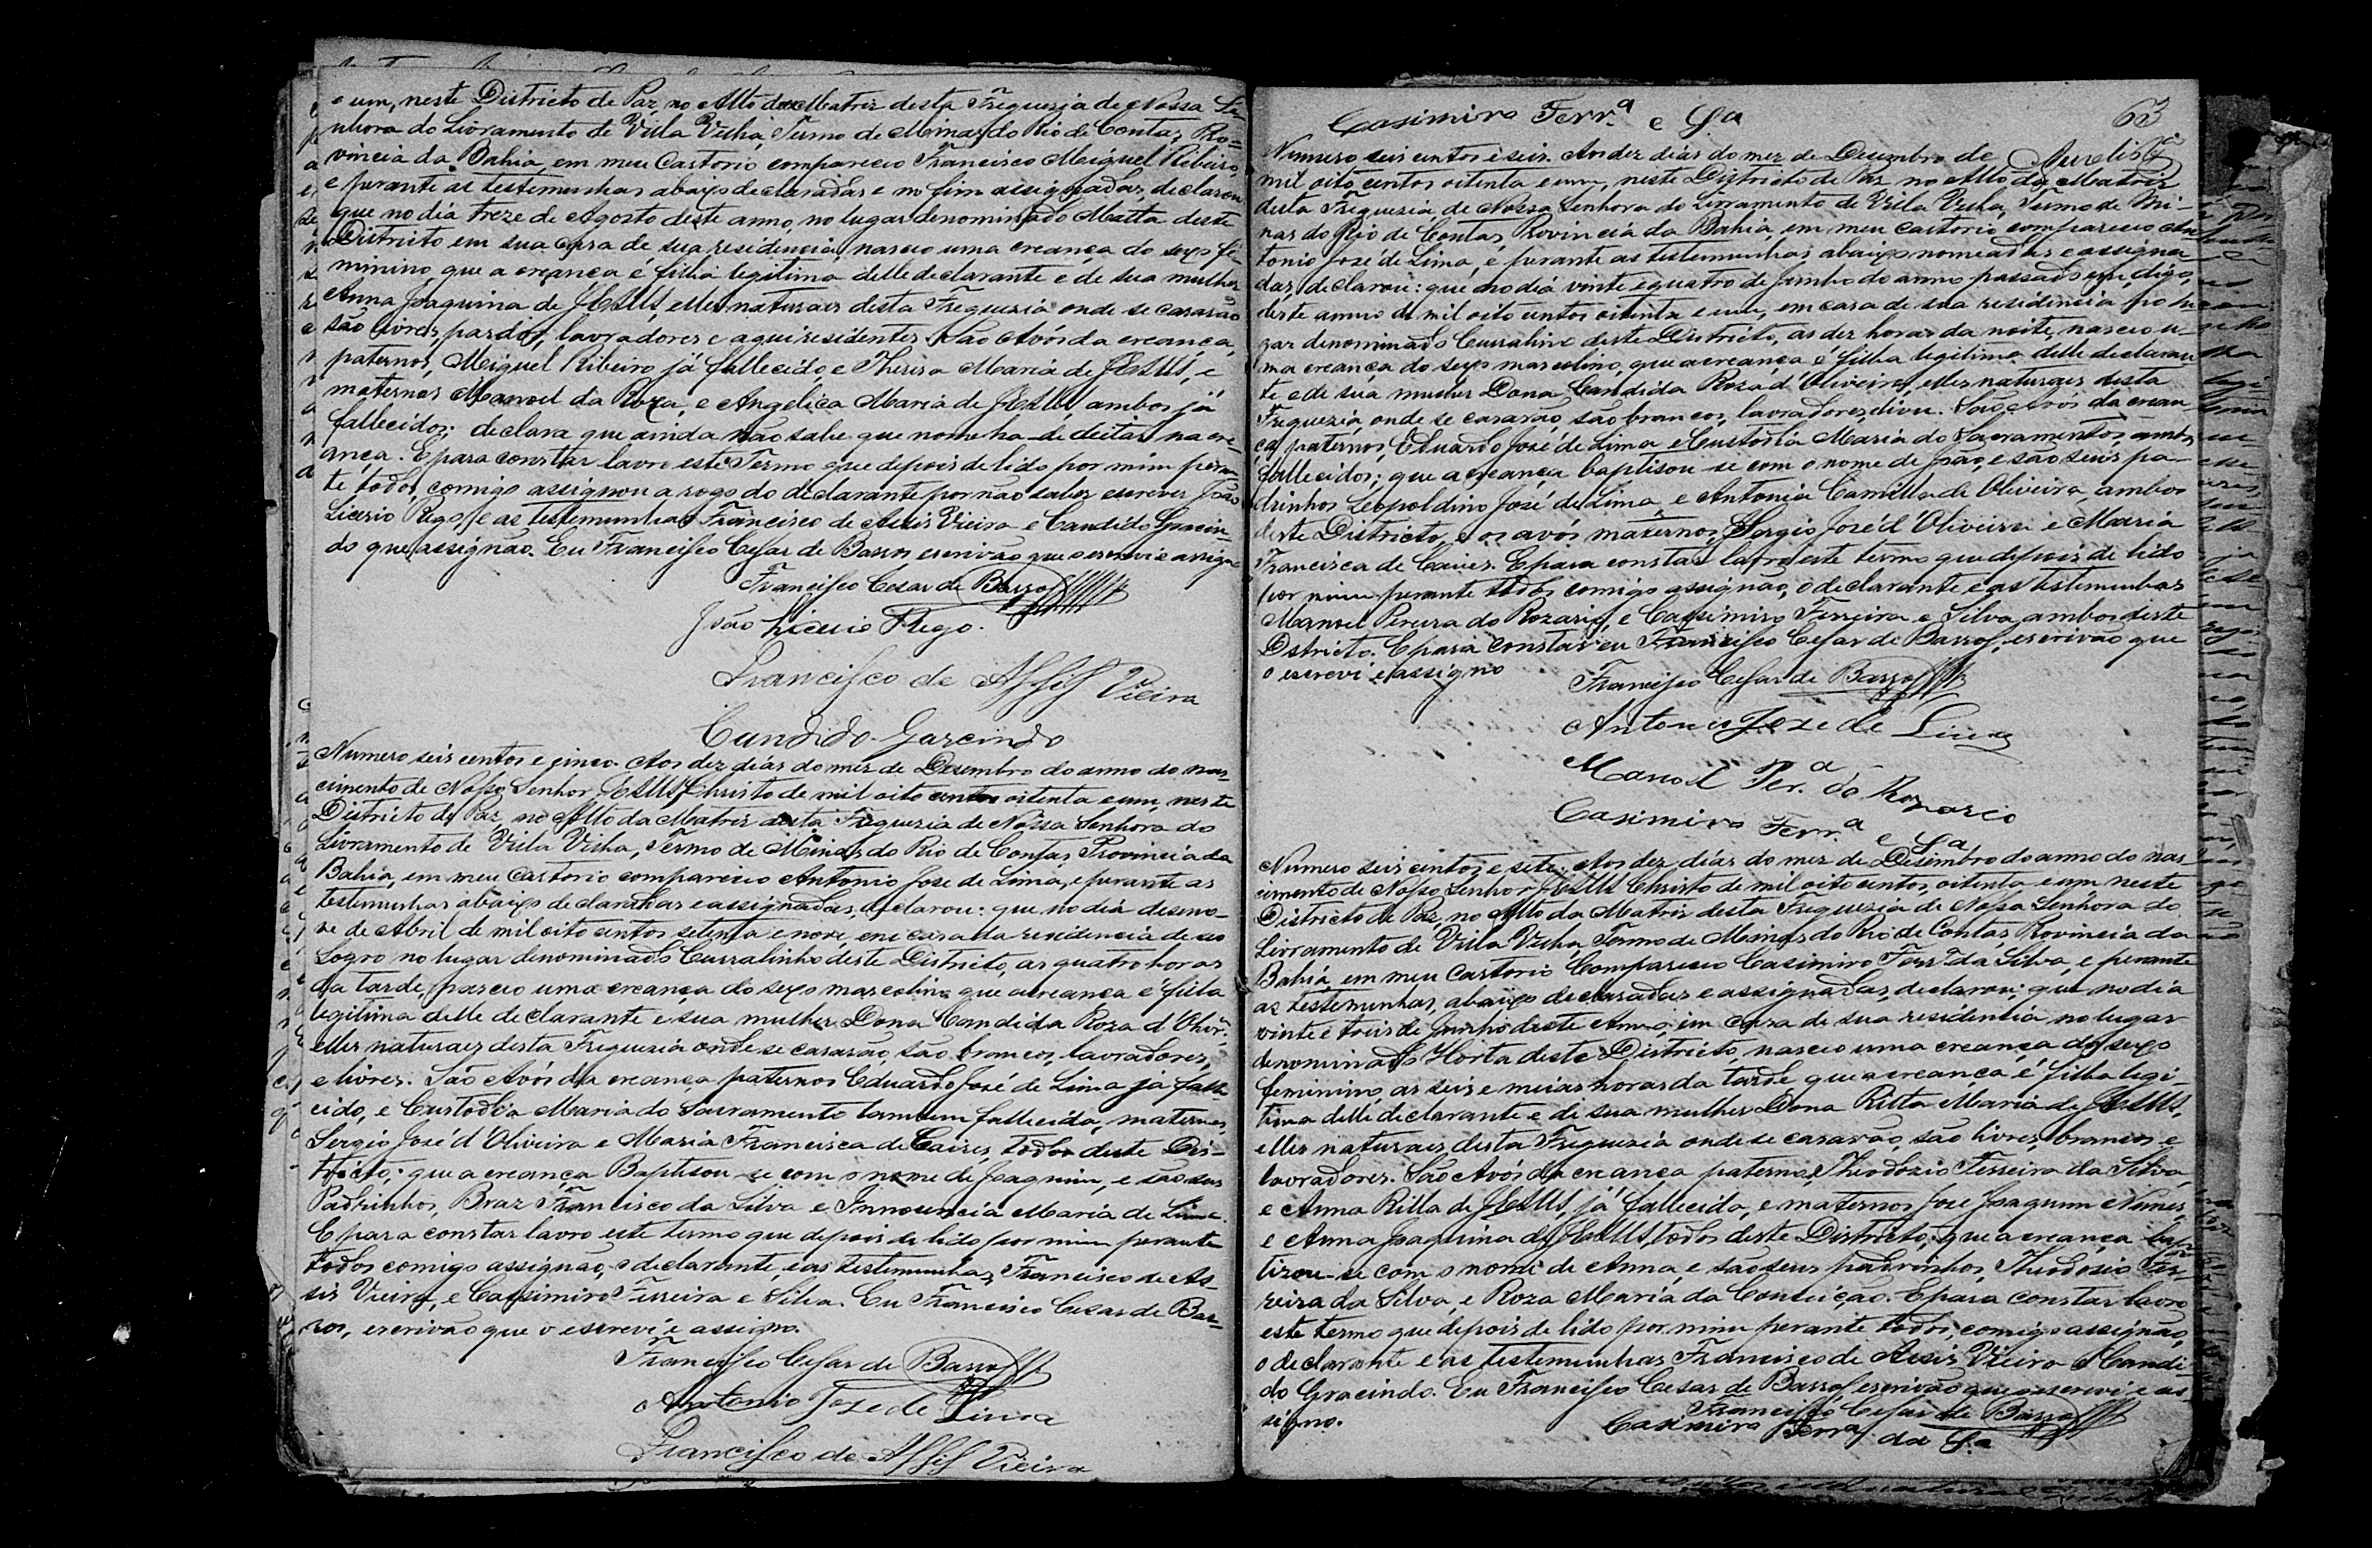 e um, neste Districto de Paz no Alto da Matriz desta Freguezia de Nossa Se-
nhora do Livramento de Villa Velha, Termo de Minas do Rio de Contas, Pro-
vincia da Bahia, em meu Cartorio compareceo Francisco Meiguel Ribeiro,
e perante as testemunhas abaxo declaradas e no fim assignadas, declarou
que no dia treze de Agosto deste anno, no lugar denominado Matta deste
Districto em sua casa de sua residencia, nasceo uma creança do sexo fe-
minino, que a creança é filha legitima delle declarante e de sua mulher
Anna Joaquina de JESUS, elles naturaes desta Freguezia onde se casarão
são livres, pardos, lavradores e aqui residentes. São Avós da creança,
paternos, Meiguel Ribeiro já fallecido, e Thereza Maria de JESUS, e
maternos Manoel da Roza, e Angelica Maria de JESUS ambos já
fallecidos; declara que ainda não sabe que nome ha-de deitar na cre-
ança. E para constar lavro este Termo que depois de lido por mim peran
te todos, comigo assignou a rogo do declarante por não saber escrever João
Licerio Rego, e as testemunhas Francisco de Assis Vieira e Candido Gracin-
do que assignão. Eu Francisco Cesar de Barros escrivão que o escrevi e assigno
Francisco Cesar de Barros
João Licerio Rego.
Francisco de Assis Vieira
Candido Garcindo
Numero seis centos e cinco. Aos dez dias do mez de Desembro do anno do nas-
cimento de Nosso Senhor JESUS Christo de mil oito centos oitenta e um, neste
Districto de Paz, no Alto da Matriz desta Freguezia de Nossa Senhora do
Livramento de Villa Velha, Termo de Minas do Rio de Contas Provincia da
Bahia, em meu Cartorio compareceo Antonio Jose de Lima, e perante as
testemunhas abaixo declaradas e assignadas, declarou: que no dia deseno-
ve de Abril de mil oito centos setenta e nove, em casa da residencia de seo
Sogro no lugar denominado Curralinho deste Districto, as quatro horas
da tarde, nasceo uma creança do sexo masculino que a creança é filha
legitima delle declarante e sua mulher Dona Candida Roza d'Olivrª
elles naturaes desta Freguezia onde se casarão, são brancos, lavradores,
e livres. São Avós da creança paternos Eduardo José de Lima já falle
cido, e Custodia Maria do Sacramento tambem fallecida, maternos
Sergio José d'Oliveira e Maria Francisca de Caires, todos deste Dis-
tricto; que a creança Baptisou-se com o nome de Joaquim, e são seus
Padrinhos, Braz Francisco da Silva e Innocencia Maria de Lima.
E para constar lavro este termo que depois de lido por mim perante
todos comigo assignão, o declarante, e as testemunhas, Francisco de As-
sis Vieira, e Casimiro Ferreira e Silva. Eu Francisco Cesar de Bar-
ros, escrivão que o escrevi e assigno.
Francisco Cesar de Barros
Antonio Joze de Lima
Francisco de Assis Vieira
Casimiro Ferr.ª e Sª
63
Numero seis centos e seis. Aos dez dias do mez de Desembro de
mil oito centos oitenta e um, neste Districto de Paz no Alto da Matriz
desta Freguezia de Nossa Senhora do Livramento de Villa Velha, Termo de Mi-
nas do Rio de Contas, Provincia da Bahia, em meu cartorio compareceo An
tonio José de Lima, e perante as testemunhas abaixo nomeadas e assigna
das, declarou: que no dia vinte e quatro de Junho do anno passado digo,
deste anno de mil oito centos oitenta e um, em casa de sua residencia no lu
gar denominado Curralinho deste Districto, as dez horas da noite, nasceo u-
ma creança do sexo masculino, que a creança é filha legitima delle declaran
te e de sua mulher Dona Candida Roza d'Oliveira, elles naturaes desta
Freguezia, onde se casarão, são brancos, lavradores, e livres. São Avós da crean
ça, paternos, Eduardo José de Lima e Custodia Maria do Sacramento, ambos
fallecidos; que a creança baptisou-se com o nome de João, e são seus pa-
drinhos Leopoldino José de Lima, e Antonia Camilla de Oliveira, ambos
deste Districto, e os avós maternos, Sergio José d'Oliveira e Maria
Francisca de Caires. E para constar lavro este termo que depois de lido
por mim perante todos comigo assignão, o declarante e as testemunhas
Manoel Pereira do Rozario, e Casimiro Ferreira e Silva, ambos deste
Dstricto. E para constar eu Francisco Cesar de Barros, escrivão que
o escrevi e assigno
Francisco Cesar de Barros
Antonio Joze de Lima
Manoel Per.ª do Rozario
Casimiro Ferr.ª e Sª
Numero seis centos e sete. Aos dez dias do mez de Desembro do anno do nas-
cimento de Nosso Senhor JESUS Christo de mil oito centos, oitenta e um neste
Districto de Paz, no Alto da Matriz desta Freguezia de Nossa Senhora do
Livramento de Villa Velha, Termo de Minas do Rio de Contas, Provincia da
Bahia em meu Cartorio Compareceo Casimiro Ferrª da Silva, e perante
as testemunhas, abaixo declaradas e assignadas, declarou; que no dia
vinte e treis de Junho deste Anno, em casa de sua residencia no lugar
denominado Horta deste Districto, nasceo uma creança do sexo
feminino, as seis e meias horas da tarde, que a creança é filha legi-
tima delle declarante e de sua mulher Dona Ritta Maria de JESUS,
elles naturaes desta Freguezia onde se casarão, são livres, brancos e
lavradores. São Avós da creança paternos, Theodozio Ferreira da Silva,
e Anna Ritta de JESUS, já fallecida, e maternos Jose Joaquim Nunes,
e Anna Joaquina de JESUS, todos deste Districto; que a creança bap
tizou-se com o nome de Anna, e são seus padrinhos, Theodosio Fer-
reira da Silva, e Roza Maria da Conceição. E para constar lavro
este termo que depois de lido por mim perante todos, comigo assignão,
o declarante e as testemunhas Francisco de Assis Vieira e Candi-
do Gracindo. Eu Francisco Cesar de Barros, escrivão que o escrevi e as-
signo.
Francisco Cesar de Barros
Casimiro Ferrª da Sª